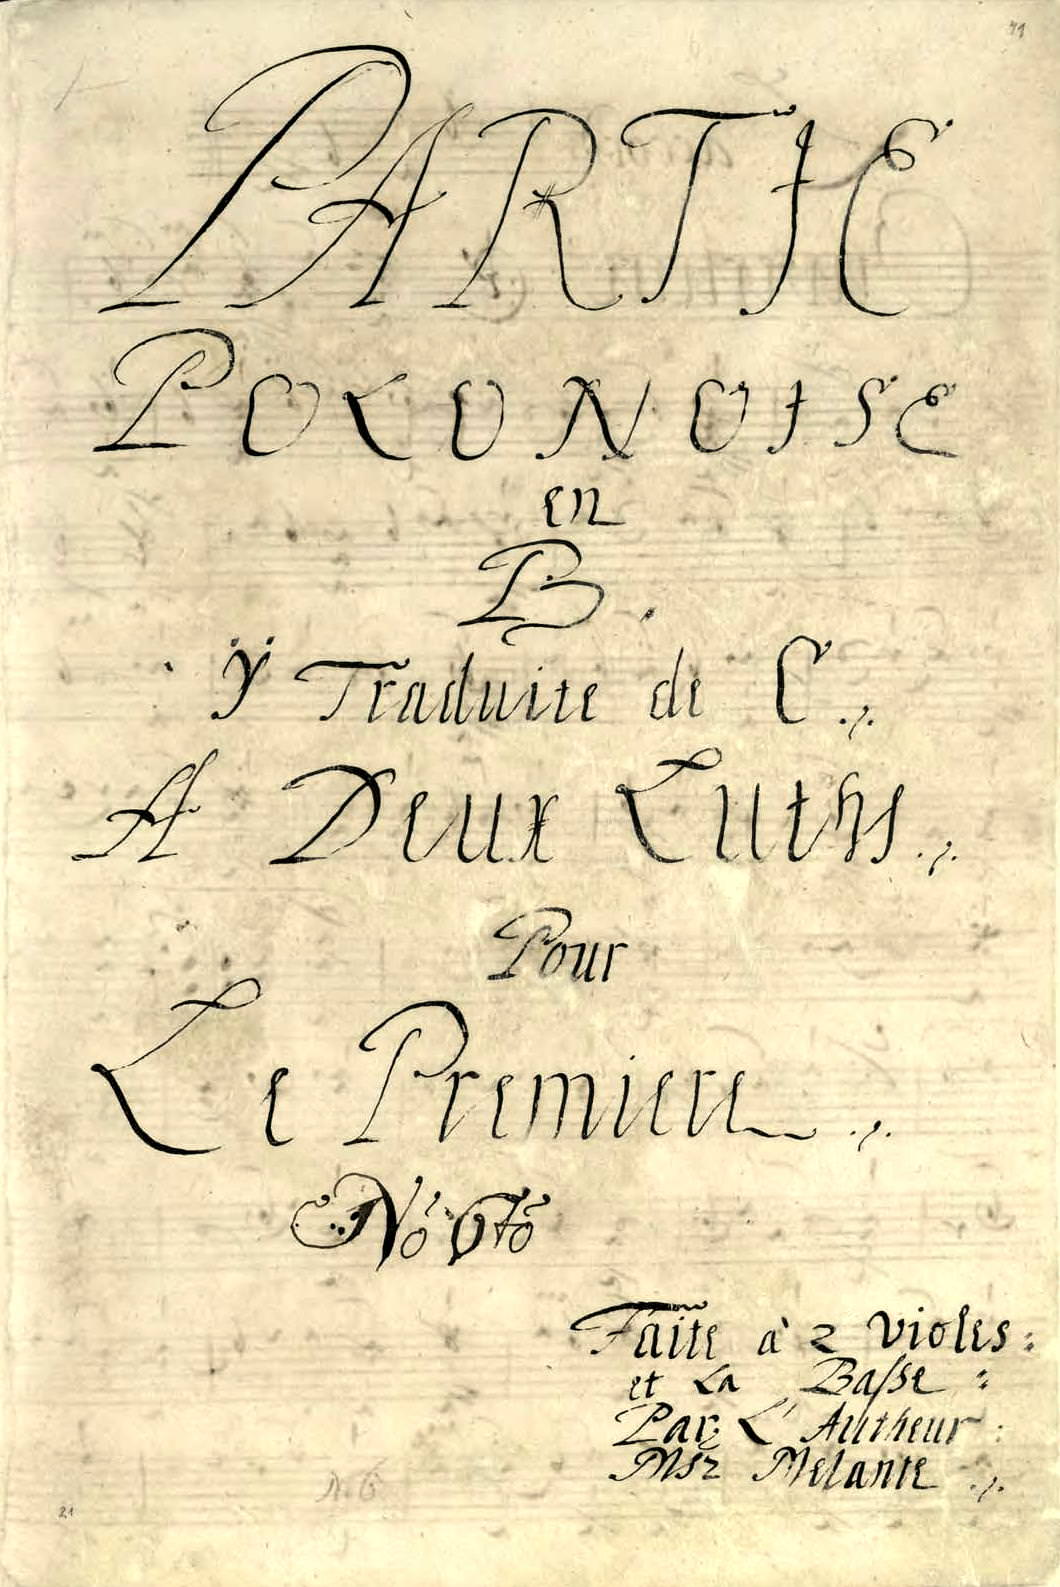 71
PARTIE
POLONOISE
en
B.
ÿ Traduite de C ./.
A Deux Luths ./.
Pour
Le Premiere ./.
Faite à 2 Violes:
et La Baſse :
Par L' Autheur :
Msr Melante ./.
21